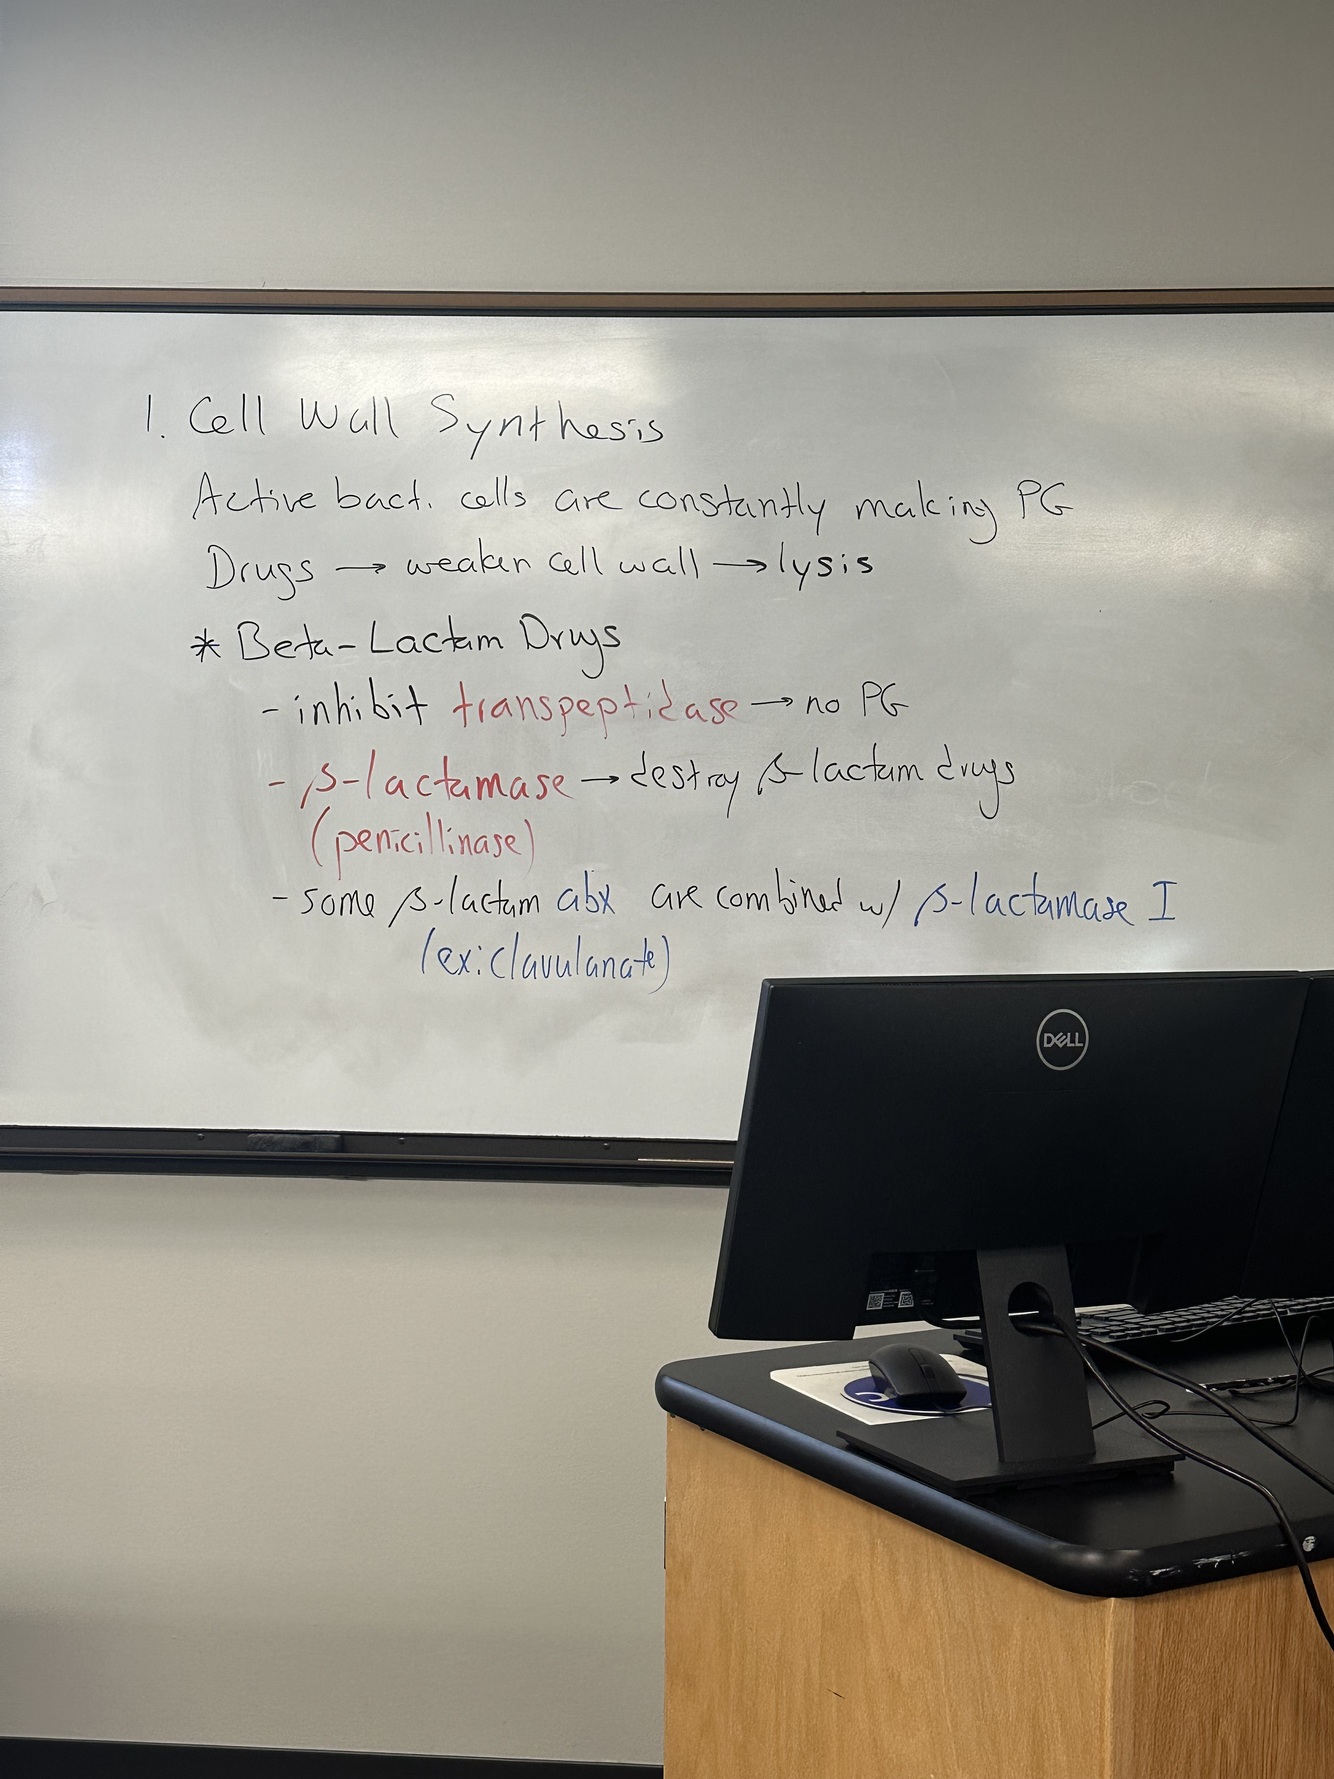 1. Cell Wall Synthesis
Active bact. cells are constantly making PG
Drugs → weaker cell wall → lysis
* Beta-Lactam Drugs
- inhibit transpeptidase → no PG
- β-lactamase → destroy β-lactam drugs
(penicillinase)
- some β-lactam abx are combined w/ β-lactamase I
(ex: clavulanate)
DELL